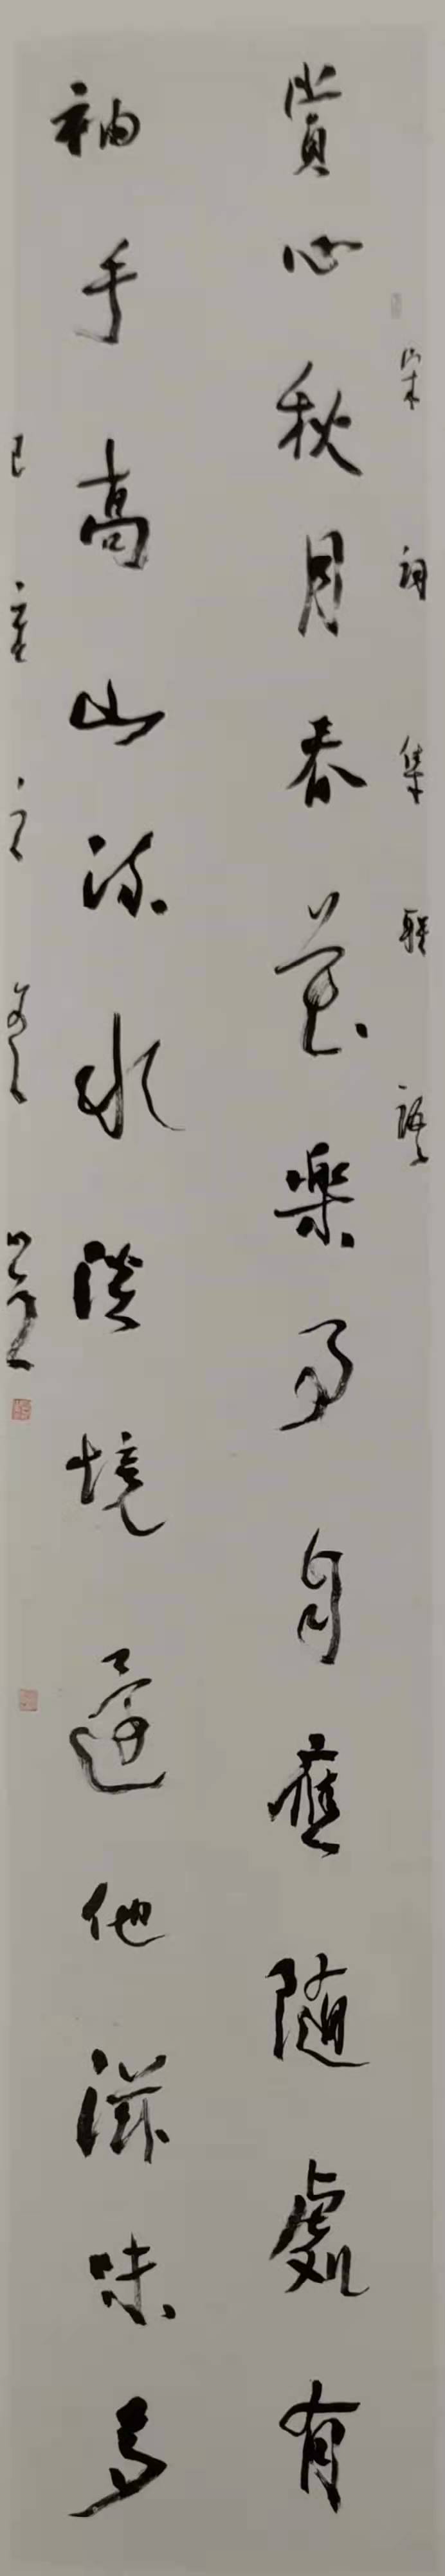 宋詞集聯語
賞心秋月春花楽事自應随處有
袖手高山流水淡境還他滋味多
己亥之夏